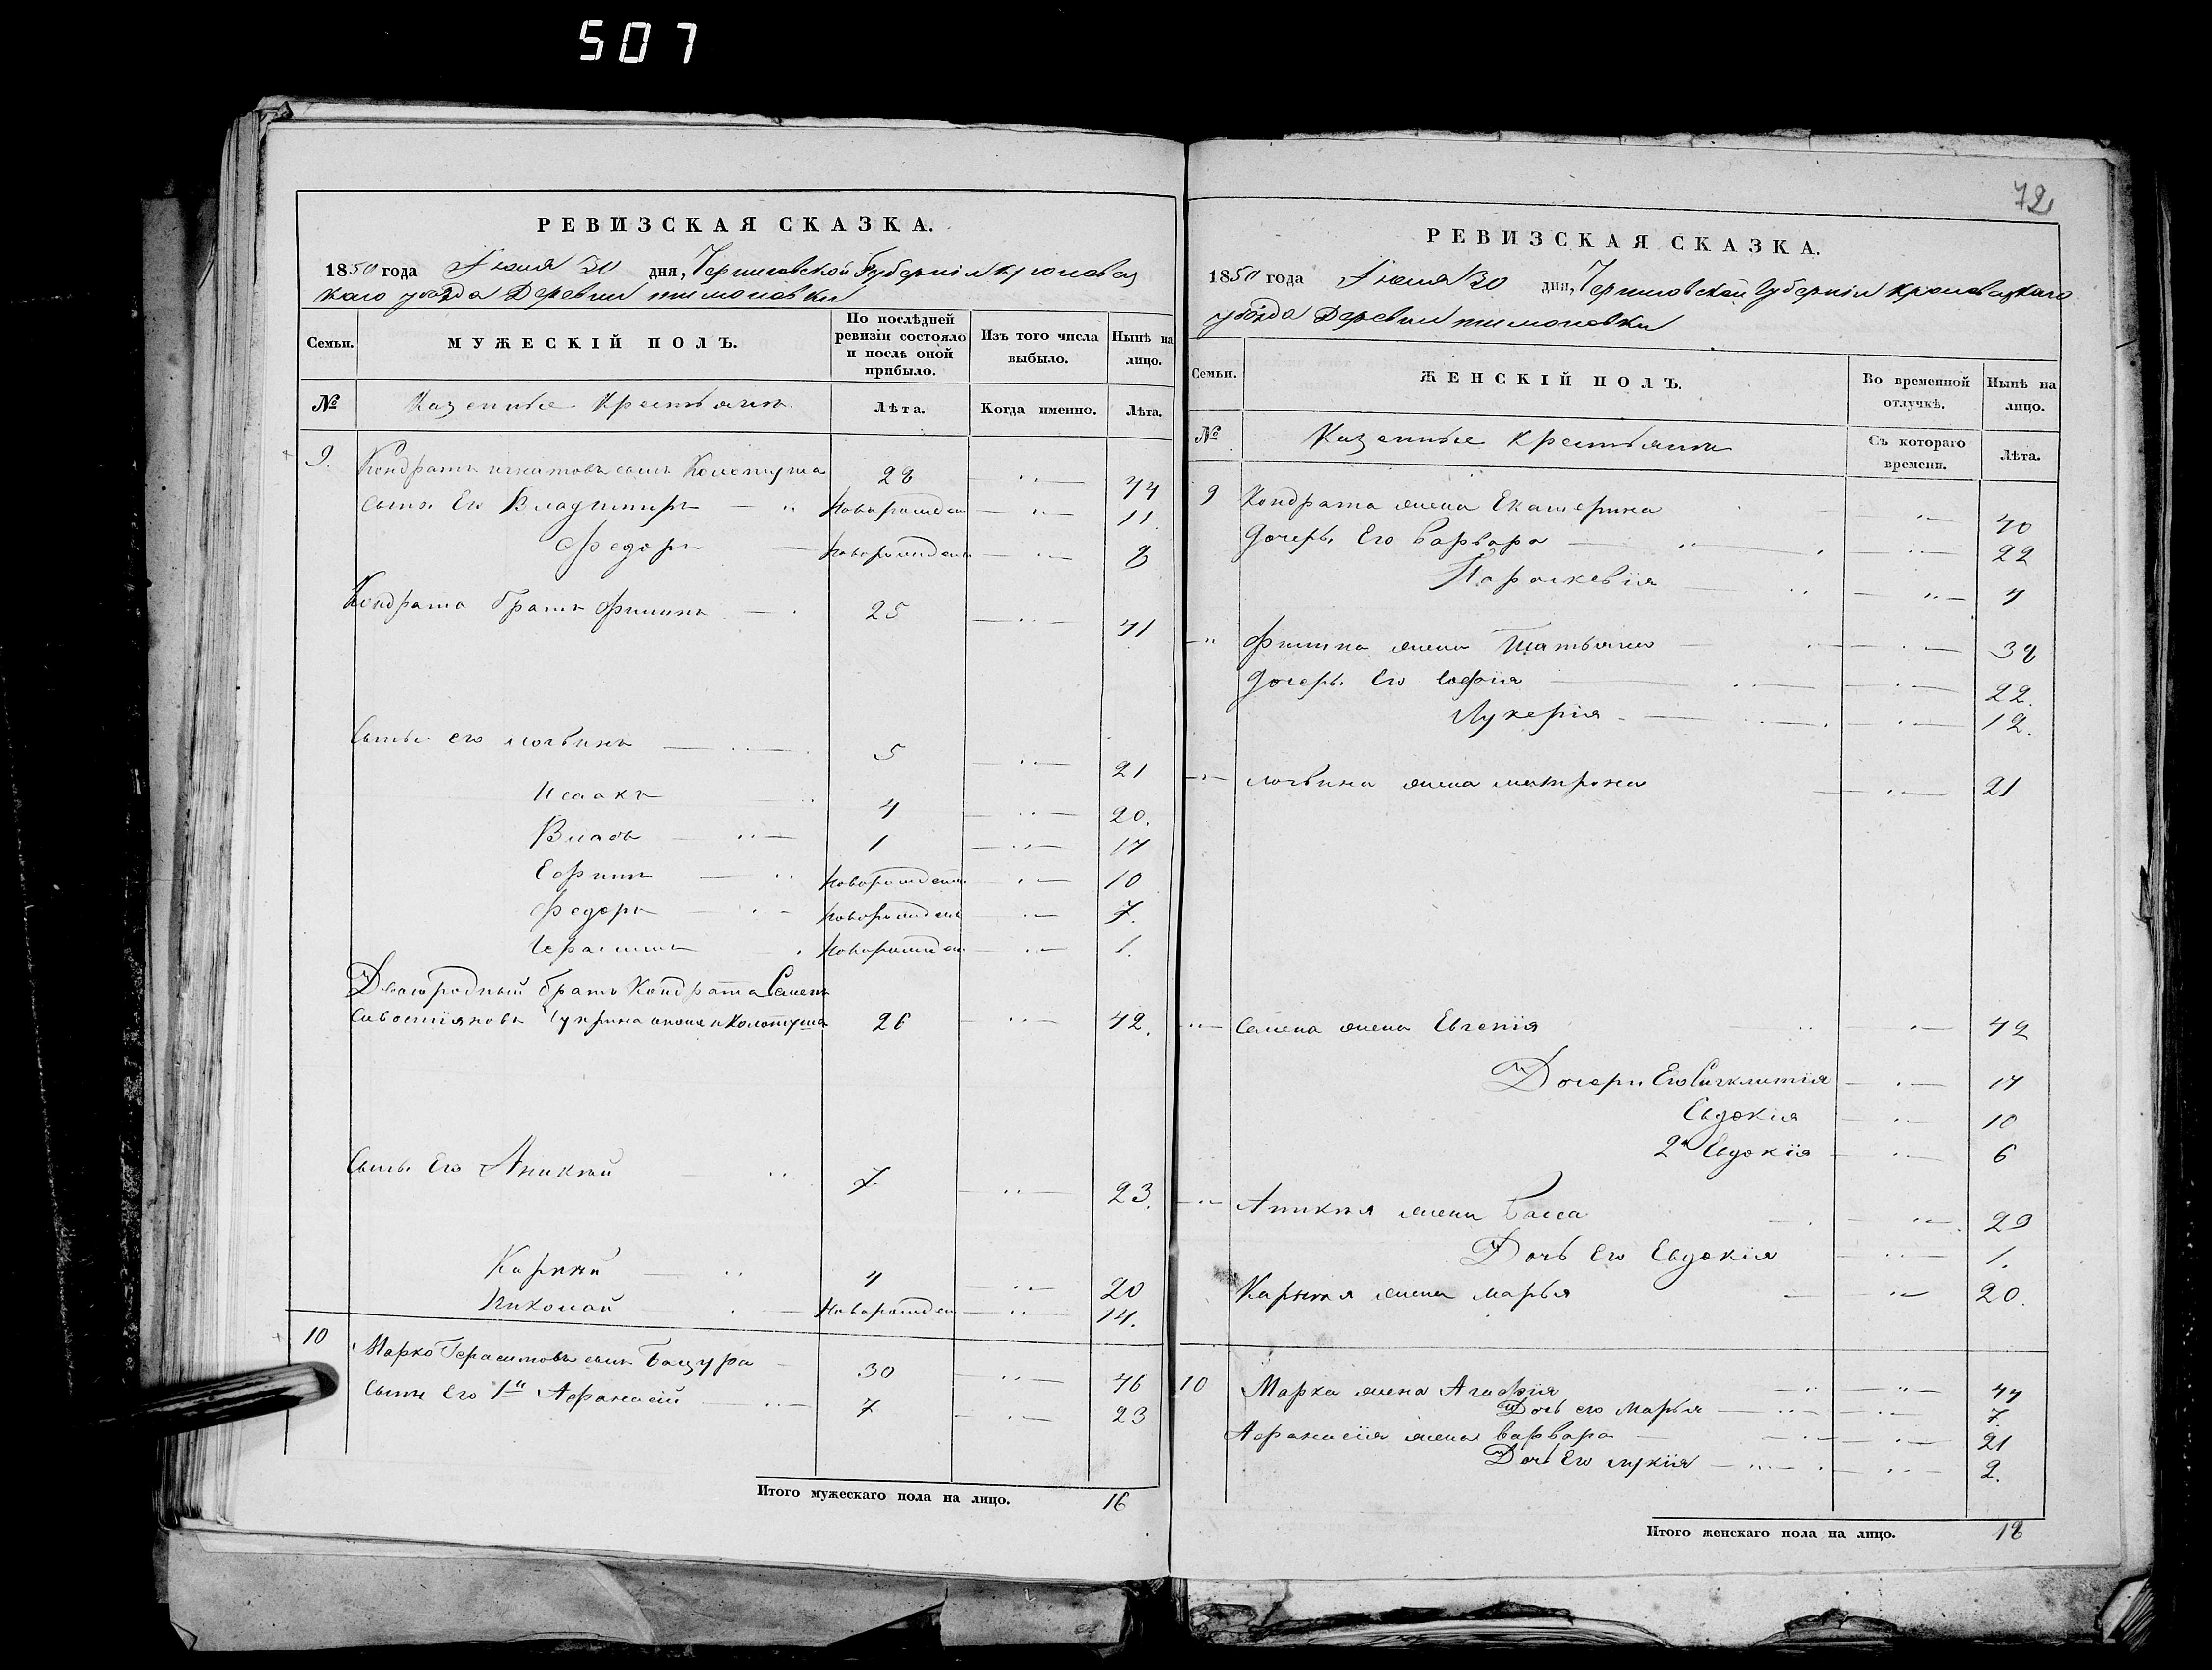 507
РЕВИЗСКАЯ СКАЗКА.
1850 года Июня 30 дня, Черниговской Губерніи кролевец
каго уѣзда Деревни тимоновки
Семьи. МУЖЕСКІЙ ПОЛЪ. По послѣдней ревизіи состояло и послѣ оной прибыло. Изъ того числа выбыло. Нынѣ на лицо.
№ Казенные Крестьяне Лѣта. Когда именно. Лѣта.
9. Кондратъ игнатовъ сынъ Колотуша 28 44
сынъ Его Владимиръ Новорожден 11
Федоръ новорожден 8
Кондрата братъ Филипъ 25 41
Сынъ его логвинъ 5 21
Исаакъ 4 20.
Власъ 1 17
Ефимъ новорожден 10
Федоръ новорожден 7.
Герасимъ новорожден 1.
Двоюродный братъ Кондрата Семенъ
Севостіяновъ Чуприна онже и Колотуша 26 42.
Сынъ Его Аникѣй 7 23.
Карпѣй 4 20
Николай Новорожден 14.
10 Марко Герасимовъ сынъ Бацура 30 46
Сынъ Его 1й Афанасій 7 23
Итого мужескаго пола на лицо. 16
72
РЕВИЗСКАЯ СКАЗКА.
1850 года Июня 30 дня, Черниговской Губерніи кролевецкаго
уѣзда Деревни тимоновки
Семьи. ЖЕНСКІЙ ПОЛЪ. Во временной отлучкѣ. Нынѣ на лицо.
№ Казенные Крестьяни Съ котораго времени. Лѣта.
9 Кондрата жена Екатерина 40
Дочерь Его Варвара 22
Параскевія 4
Филипа жена Татьяна 38
Дочерь Его Софія 22.
Лукерія 12.
логвина жена матрона 21
Семена жена Евгенія 42
Дочери Его Сигклитія 17
Евдокія 10
2я Евдокія 6
Аникѣя жена Васса 29
Дочь его Евдокія 1.
Карпѣя жена марья 20.
10 Марка жена Агафія 44
Дочь его Марья 7.
Афанасія жена варвара 21
Дочь Его лукія 2.
Итого женскаго пола на лицо. 18